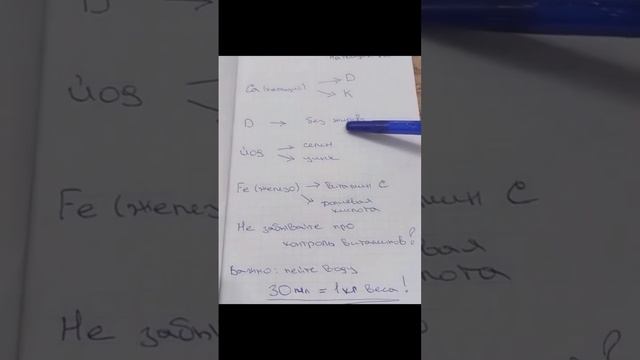 Ca (кальций) → D
→ K
D → без
йод → селен
→ цинк
Fe (железо) → витамин C
→ фолиевая
кислота
Не забывайте про
контроль витаминов!
Важно: пейте воду
30 мл = 1 кг веса!